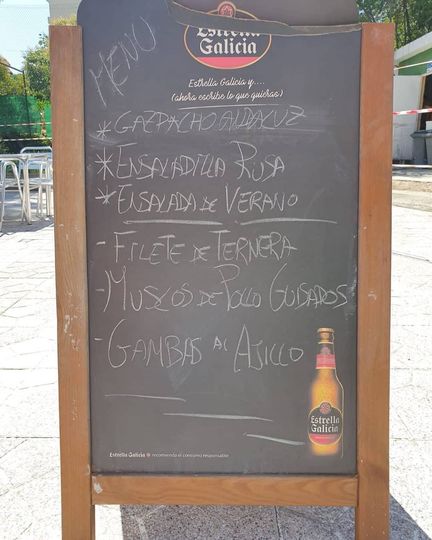 Estrella
Galicia
Estrella Galicia y....
(ahora escribe lo que quieras)
MENU
* GAZPACHO ANDALUZ
* ENSALADILLA RUSA
* ENSALADA DE VERANO
- FILETE DE TERNERA
- MUSLOS DE POLLO GUISADOS
- GAMBAS AL AJILLO
Estrella
Galicia
Estrella Galicia recomienda el consumo responsable